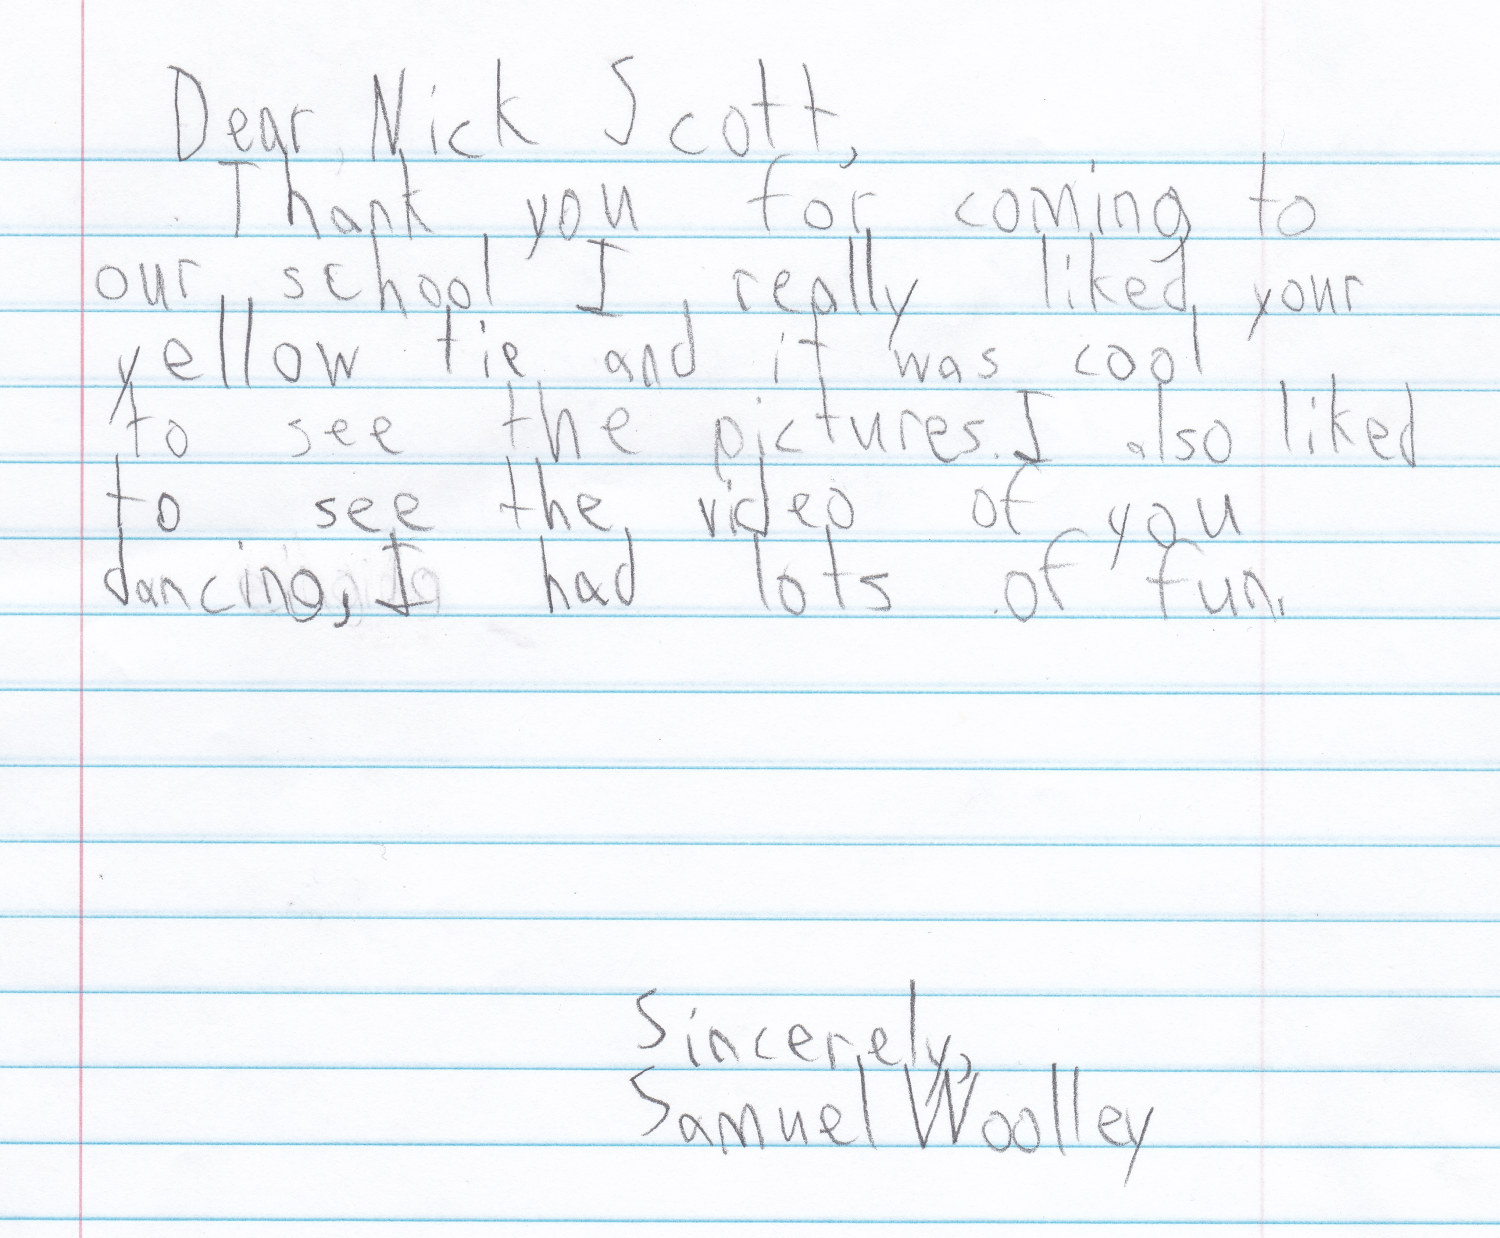 Dear Nick Scott,
Thank you for coming to
our school I really liked your
yellow tie and it was cool
to see the pictures. I also liked
to see the video of you
dancing, I had lots of fun.
Sincerely,
Samuel Woolley